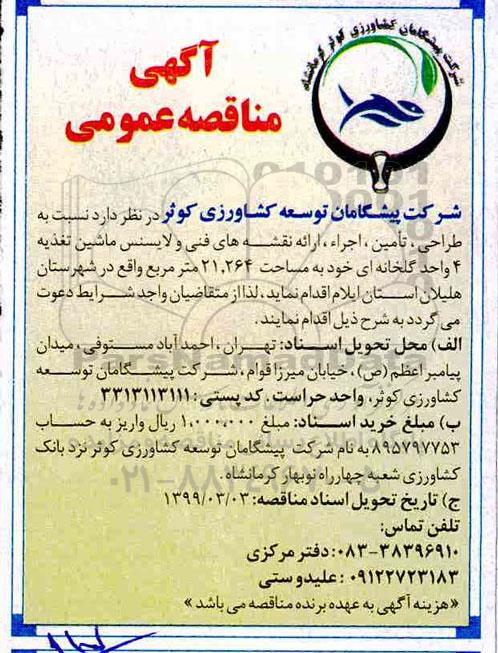 شرکت پیشگامان کشاورزی کوثر کرمانشاه
آگهی
مناقصه عمومی
شرکت پیشگامان توسعه کشاورزی کوثر در نظر دارد نسبت به
طراحی ، تأمین ، اجراء ، ارائه نقشه های فنی و لایسنس ماشین تغذیه
۴ واحد گلخانه ای خود به مساحت ۲۱,۲۶۴ متر مربع واقع در شهرستان
هلیلان استان ایلام اقدام نماید ، لذا از متقاضیان واجد شرایط دعوت
می گردد به شرح ذیل اقدام نمایند.
الف) محل تحویل اسناد: تهران ، احمدآباد مستوفی ، میدان
پیامبر اعظم (ص) ، خیابان میرزا قوام ، شرکت پیشگامان توسعه
کشاورزی کوثر، واحد حراست . کد پستی : ۳۳۱۳۱۱۳۱۱۱
ب) مبلغ خرید اسناد: مبلغ ۱,۰۰۰,۰۰۰ ریال واریز به حساب
۸۹۵۷۹۷۷۵۳ به نام شرکت پیشگامان توسعه کشاورزی کوثر نزد بانک
کشاورزی شعبه چهارراه نوبهار کرمانشاه
ج) تاریخ تحویل اسناد مناقصه: ۱۳۹۹/۰۳/۰۳
تلفن تماس:
۰۸۳-۳۸۳۹۶۹۱۰: دفتر مرکزی
۰۹۱۲۲۷۲۳۱۸۳ : علیدوستی
«هزینه آگهی به عهده برنده مناقصه می باشد »